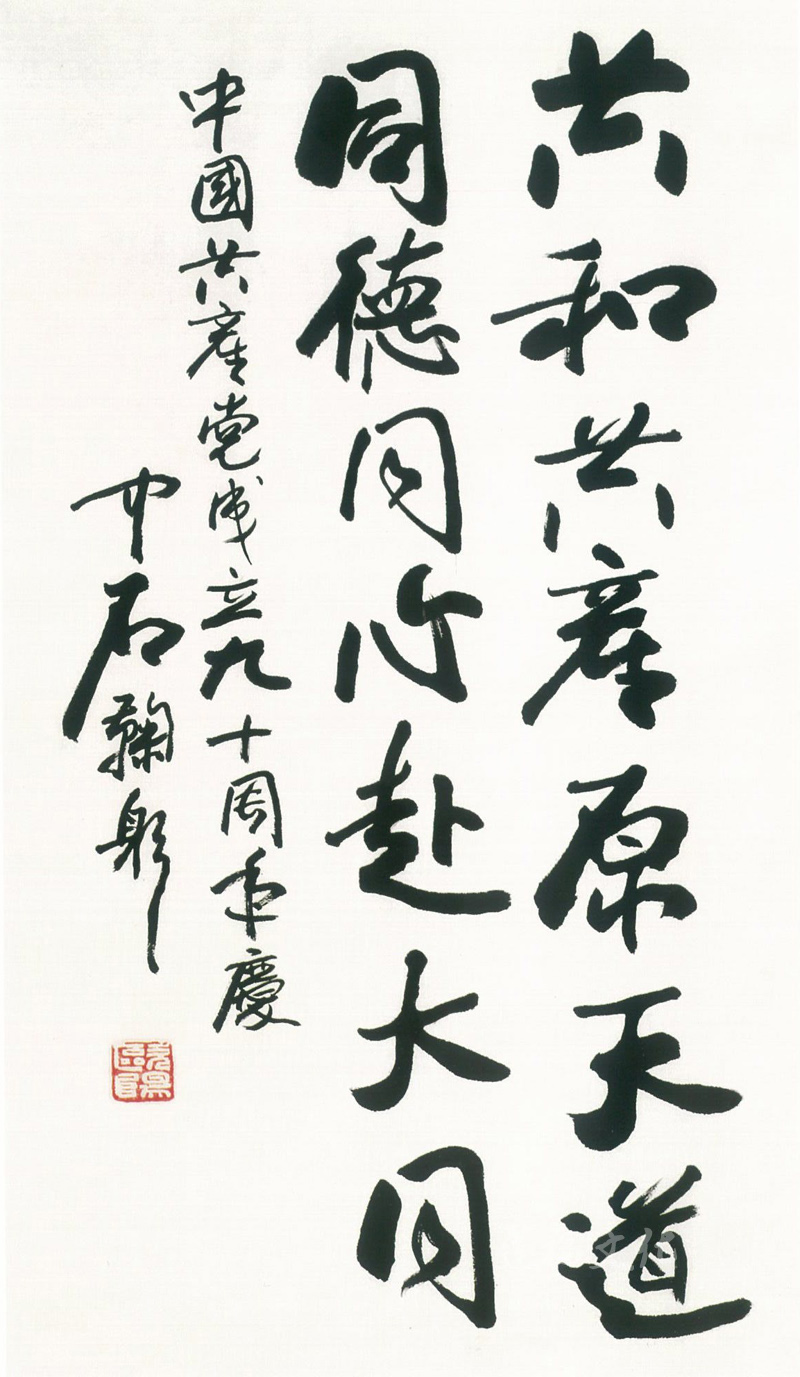 共和共產原天道
同德同心赴大同
中國共產党成立九十周年慶
中石鞠躬